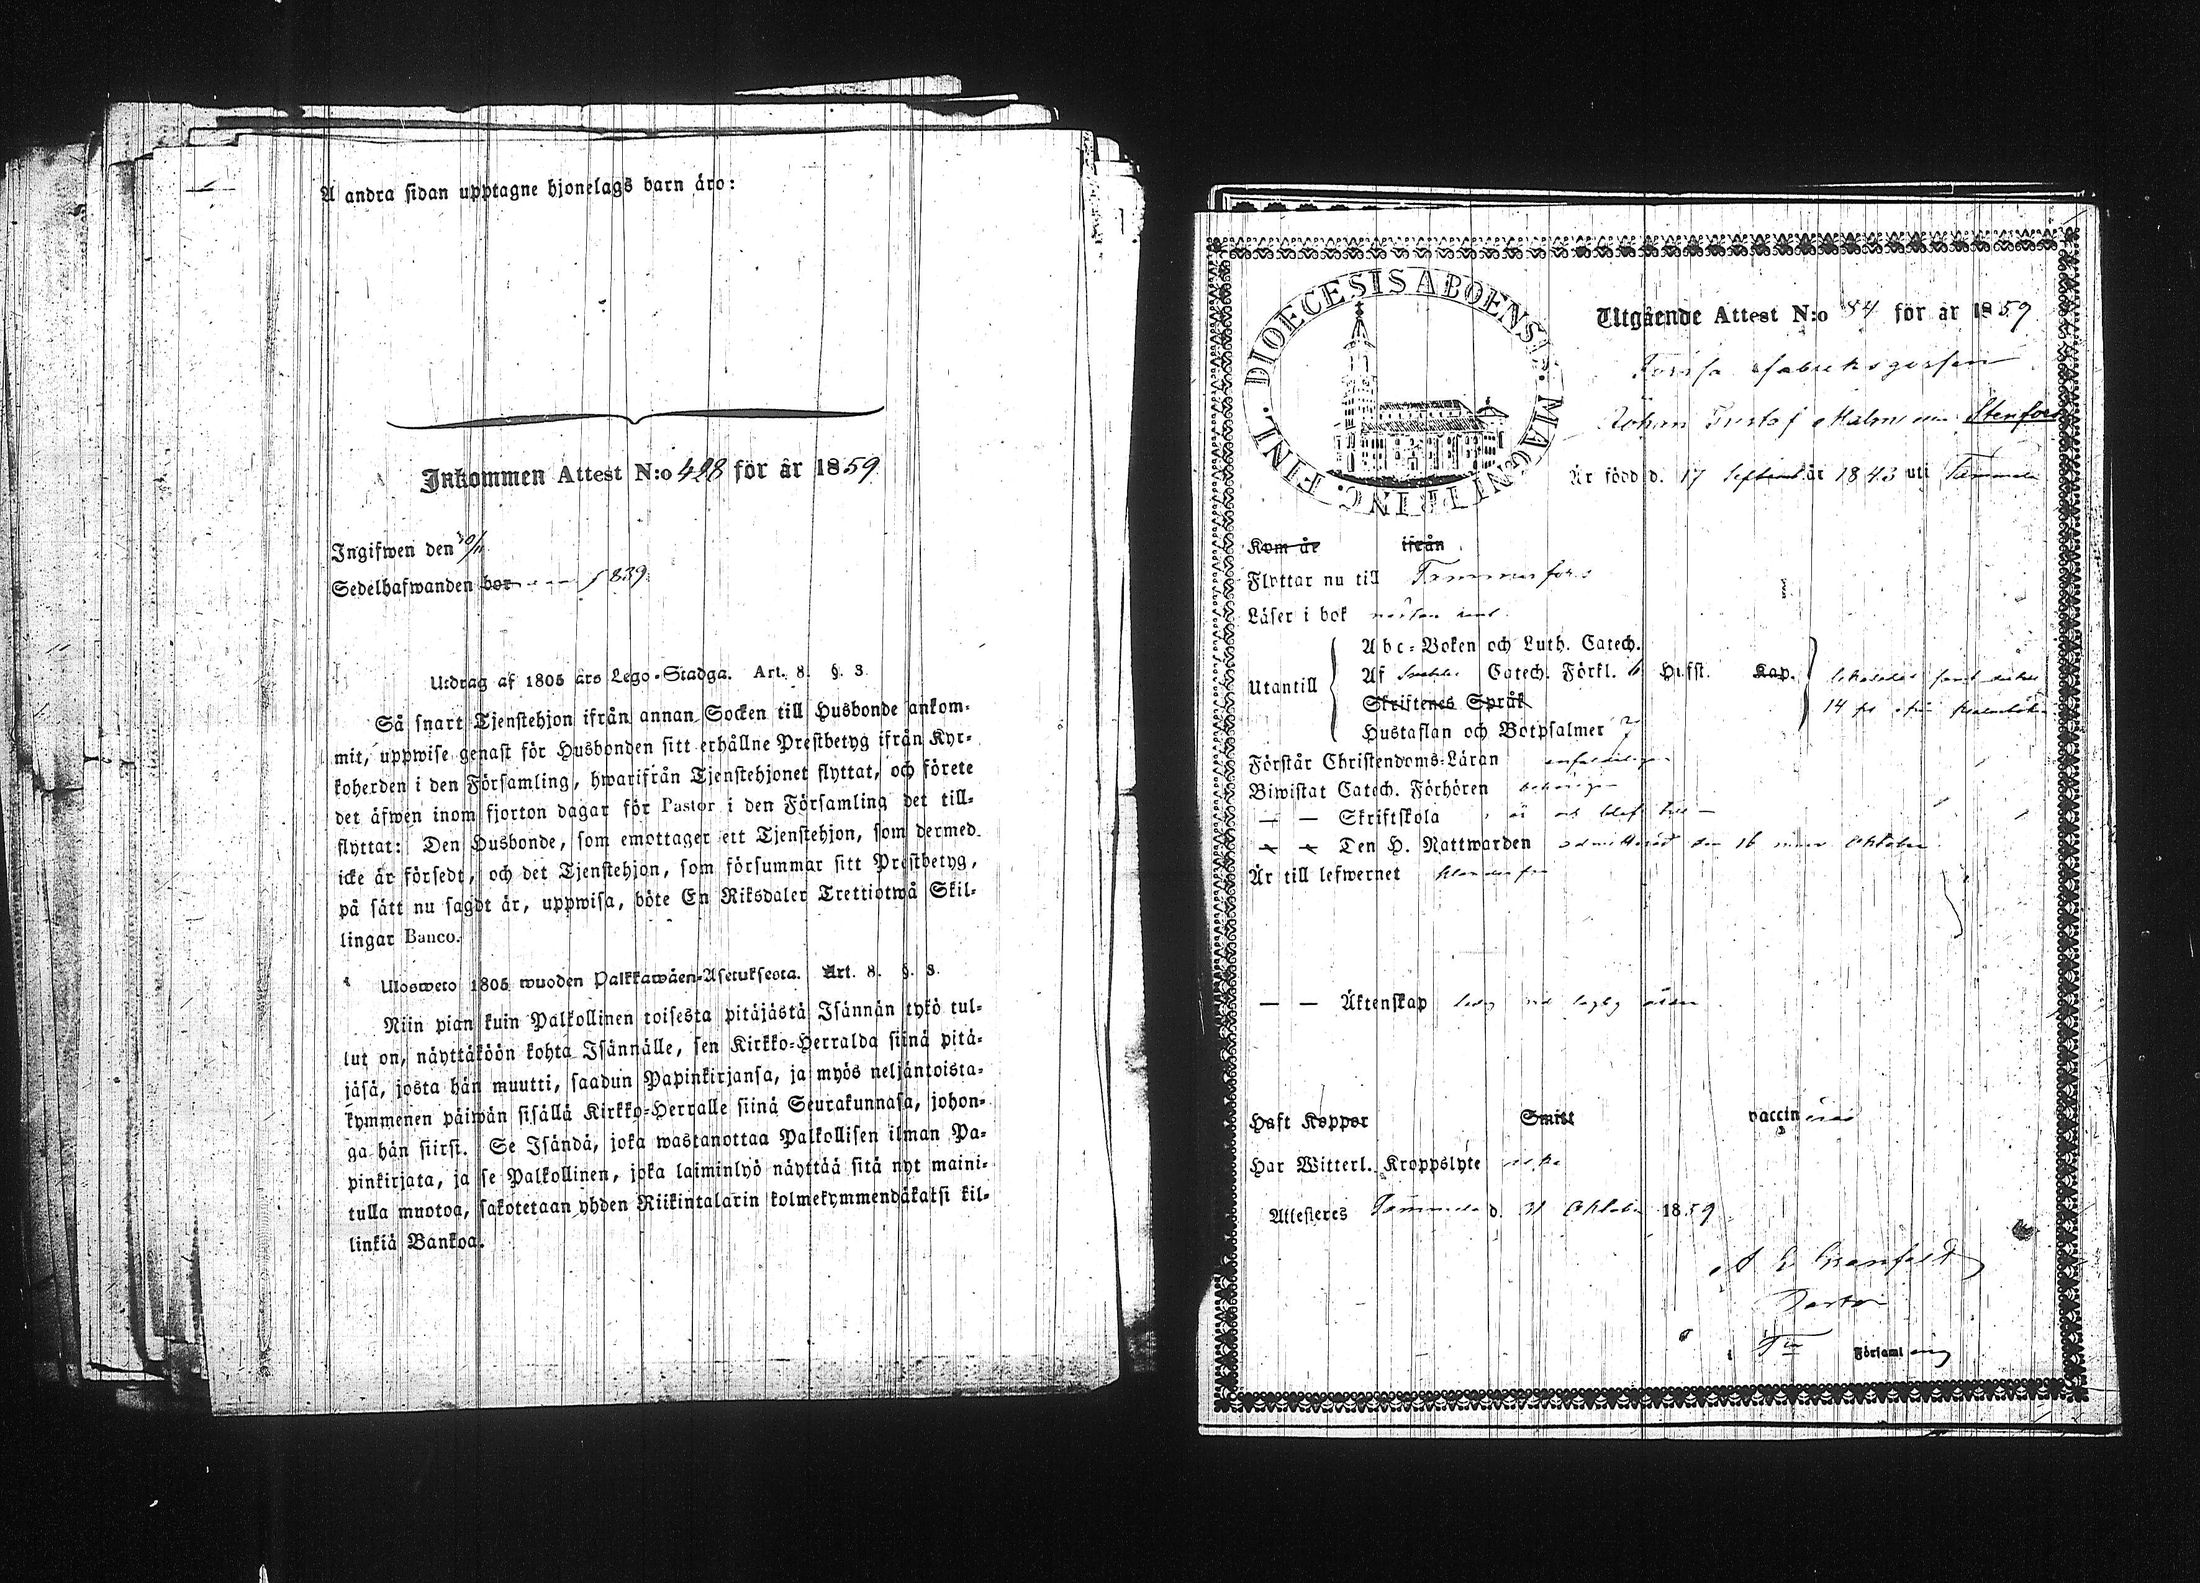 Å andra sidan upptagne hjonelags barn äro:
Inkommen Attest N:o 428 för år 1859
Ingifwen den
Sedelhafwanden bor f 839.
Utdrag af 1805 års Lego-Stadga. Art. 8. §. 3.
Så snart Tjenstehjon ifrån annan Socken till Husbonde ankom-
mit, uppwise genast för Husbonden sitt erhållne Prestbetyg ifrån Kyr-
koherden i den Församling, hwarifrån Tjenstehjonet flyttat, och förete
det äfwen inom fjorton dagar för Pastor i den Församling det till-
flyttat: Den Husbonde, som emottager ett Tjenstehjon, som dermed
icke är försedt, och det Tjenstehjon, som försummar sitt Prestbetyg,
på sätt nu sagdt är, uppwisa, böte En Riksdaler Trettiotwå Skil-
lingar Banco.
Ulosweto 1805 wuoden Palkkawäen-Asetuksesta. Art. 8. §. 3.
Niin pian kuin Palkollinen toisesta pitäjästä Isännän tykö tul-
lut on, näyttäköön kohta Isännälle, sen Kirkko-Herralda siinä pitä-
jäsä, josta hän muutti, saadun Papinkirjansa, ja myös neljäntoista-
kymmenen päiwän sisällä Kirkko-Herralle siinä Seurakunnasa, johon-
ga hän siirst. Se Isändä, joka wastanottaa Palkollisen ilman Pa-
pinkirjata, ja se Palkollinen, joka laiminlyö näyttää sitä nyt maini-
tulla muotoa, sakotetaan yhden Riikintalarin kolmekymmendäkatsi kil-
linkiä Bankoa.
DIOECESIS ABOENSIS. MAGNI PRINC. FINL.
Utgående Attest N:o 84 för år 1859
Forssa fabriksgossen
Johan Gustaf Malm Stenfors
Är född d. 17 Septemb år 1843 uti Tammela
Kom år ifrån
Flyttar nu till Tammerfors
Läser i bok nästan inn.
Abc-Boken och Luth. Catech.
Utantill Af Catech. Förkl. 6 Hufst. Kap.
Skriftenes Språk 14 ps
Hustaflan och Botpsalmer 7
Förstår Christendoms-Läran
Biwistat Catech. Förhören
— — Skriftskola
— — Den H. Nattwarden admitterad den 16 Oktober
Är till lefwernet
— — Äktenskap ledig
Haft Koppor Smitt vaccin
Har Witterl. Kroppslyte
Attesteres Tammela d. 31 Oktober 1859
A E Granfelt
Pastor
i Församling